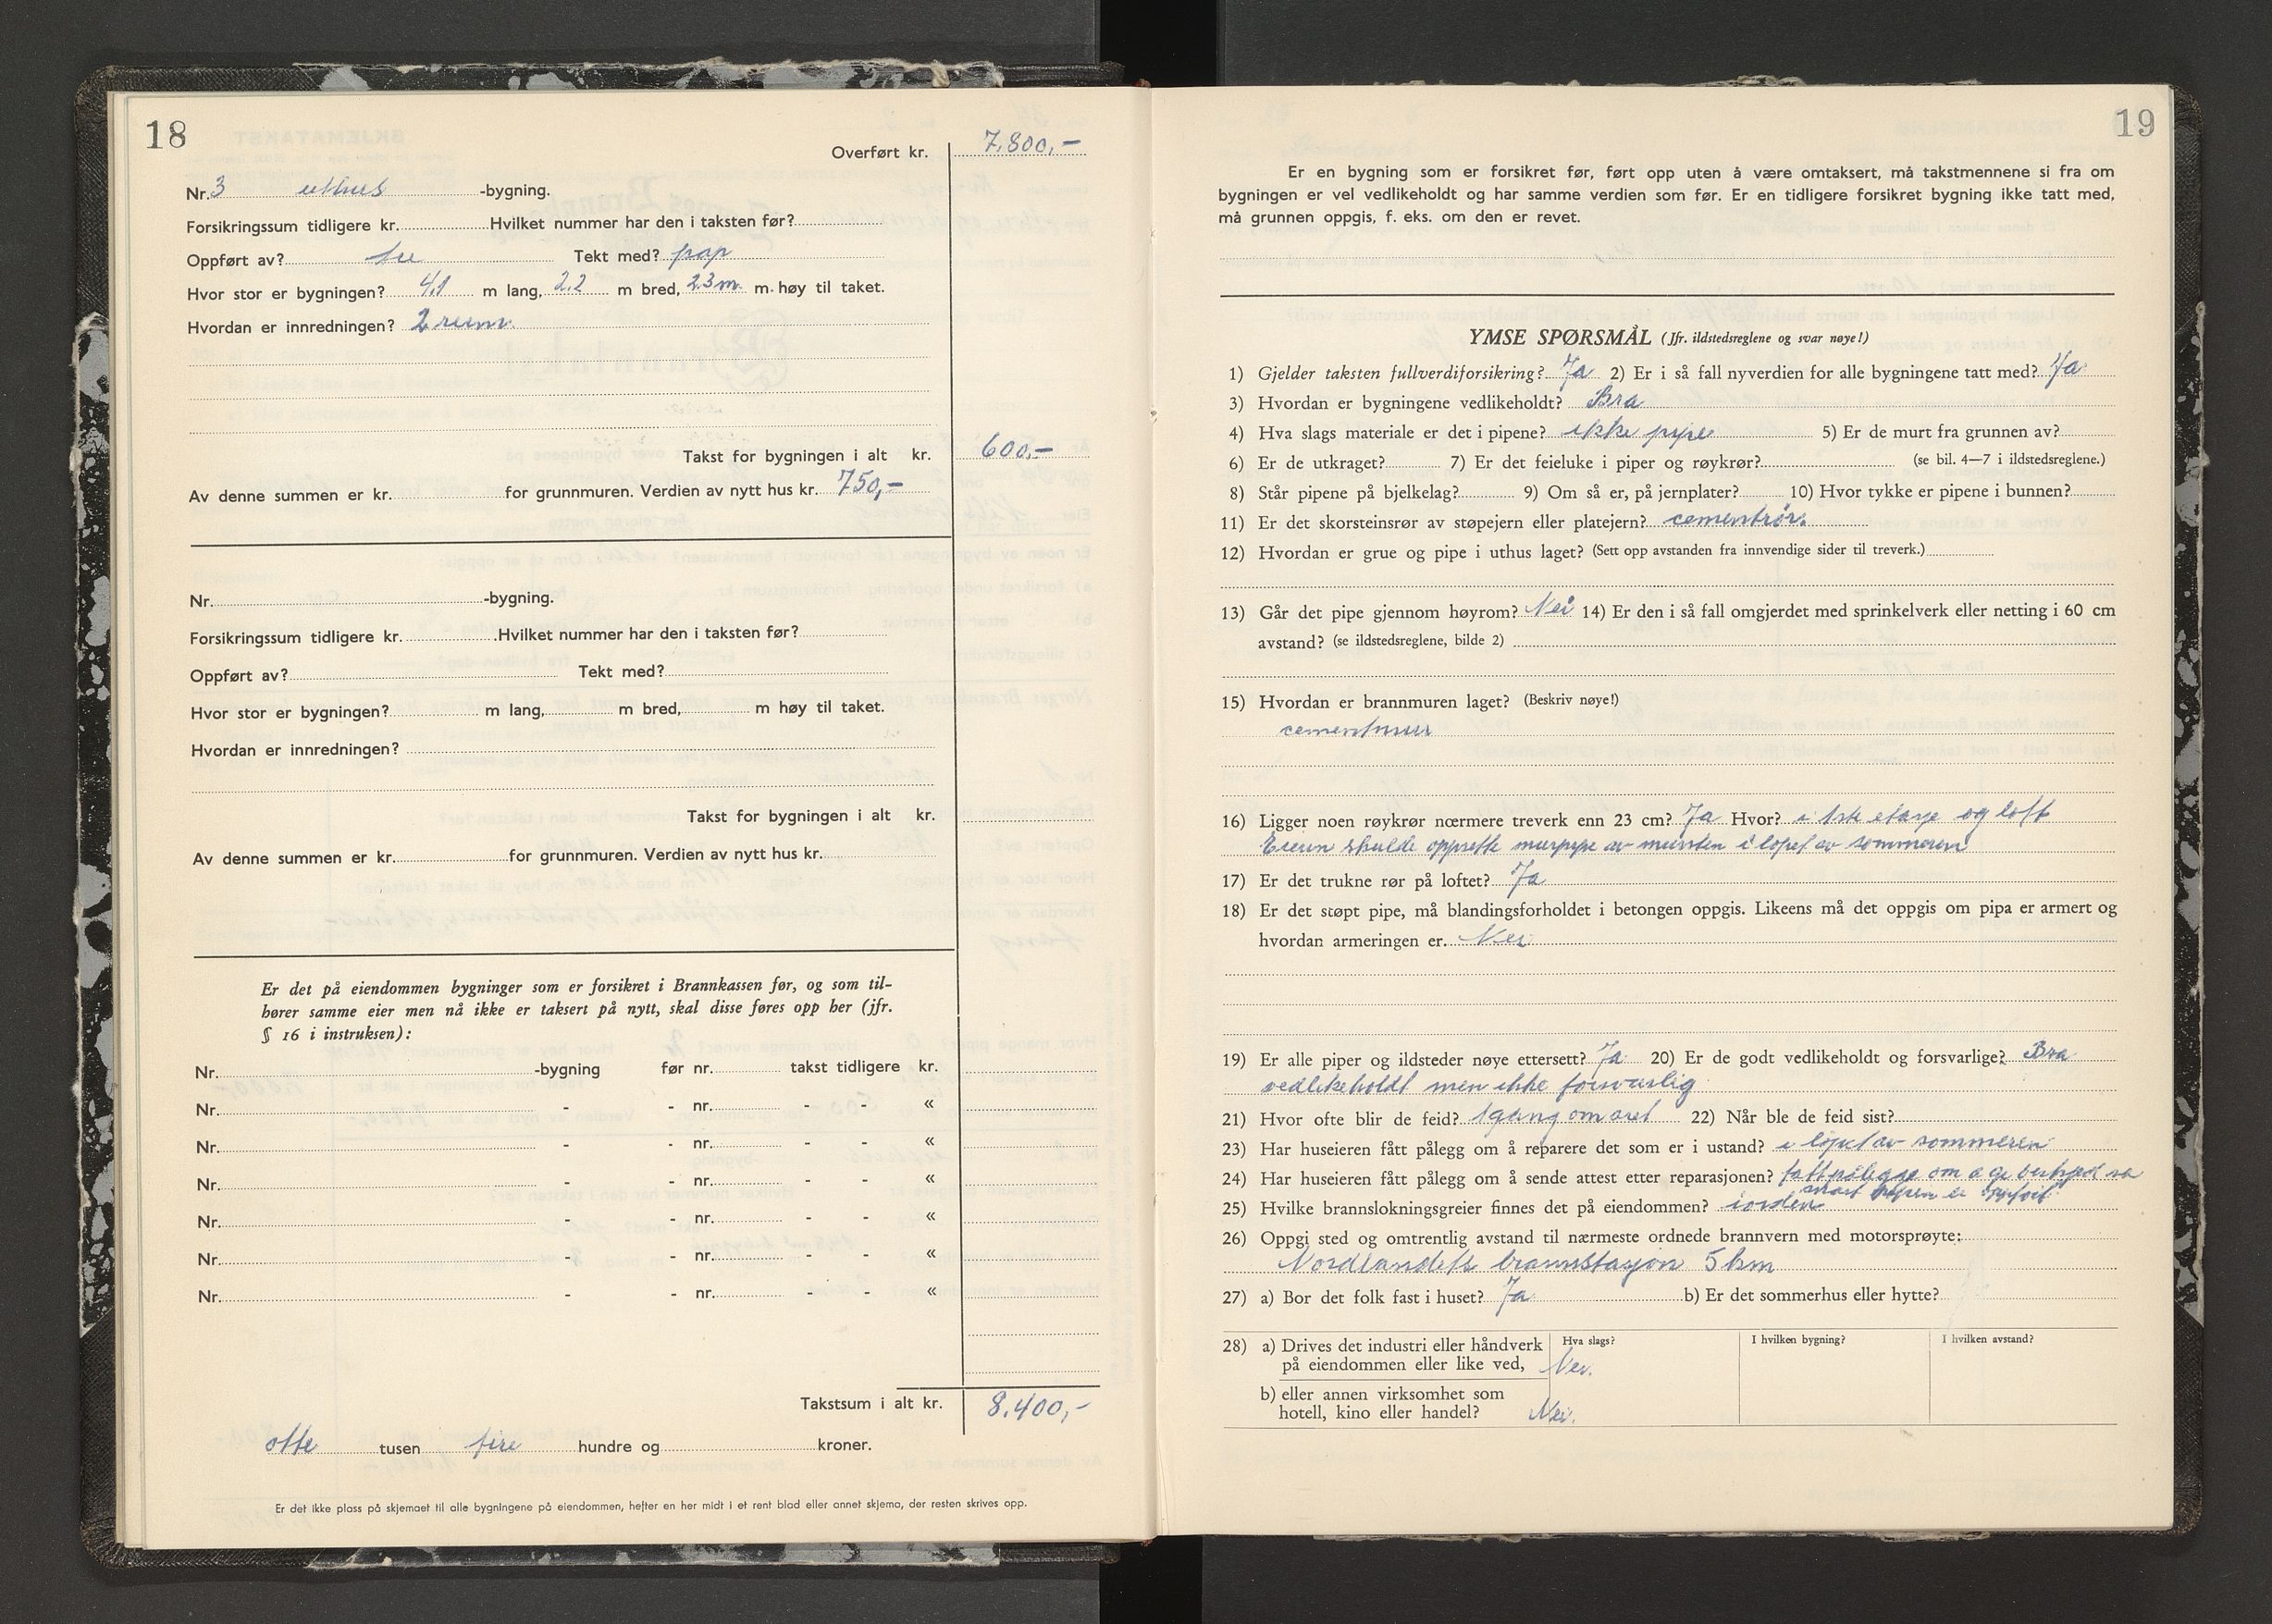 18
Overført kr. 7.800,-
Nr. 3 uthus -bygning.
Forsikringssum tidligere kr. Hvilket nummer har den i taksten før?
Oppført av? tre Tekt med? pap
Hvor stor er bygningen? 4,1 m lang, 2.2 m bred, 2.3 m m høy til taket.
Hvordan er innredningen? 2 rum.
Takst for bygningen i alt kr. 600,-
Av denne summen er kr. for grunnmuren. Verdien av nytt hus kr. 750,-
Nr. -bygning.
Forsikringssum tidligere kr. Hvilket nummer har den i taksten før?
Oppført av? Tekt med?
Hvor stor er bygningen? m lang, m bred, m høy til taket.
Hvordan er innredningen?
Takst for bygningen i alt kr.
Av denne summen er kr. for grunnmuren. Verdien av nytt hus kr.
Er det på eiendommen bygninger som er forsikret i Brannkassen før, og som til-
hører samme eier men nå ikke er taksert på nytt, skal disse føres opp her (jfr.
§ 16 i instruksen):
Nr. -bygning før nr. takst tidligere kr.
Nr. - - nr. - - «
Nr. - - nr. - - «
Nr. - - nr. - - «
Nr. - - nr. - - «
Nr. - - nr. - - «
Nr. - - nr. - - «
Takstsum i alt kr. 8.400,-
otte tusen fire hundre og kroner.
Er det ikke plass på skjemaet til alle bygningene på eiendommen, hefter en her midt i et rent blad eller annet skjema, der resten skrives opp.
19
Er en bygning som er forsikret før, ført opp uten å være omtaksert, må takstmennene si fra om
bygningen er vel vedlikeholdt og har samme verdien som før. Er en tidligere forsikret bygning ikke tatt med,
må grunnen oppgis, f. eks. om den er revet.
YMSE SPØRSMÅL (Jfr. ildstedsreglene og svar nøye!)
1) Gjelder taksten fullverdiforsikring? Ja 2) Er i så fall nyverdien for alle bygningene tatt med? Ja
3) Hvordan er bygningene vedlikeholdt? Bra
4) Hva slags materiale er det i pipene? ikke pipe 5) Er de murt fra grunnen av?
6) Er de utkraget? 7) Er det feieluke i piper og røykrør? (se bil. 4—7 i ildstedsreglene.)
8) Står pipene på bjelkelag? 9) Om så er, på jernplater? 10) Hvor tykke er pipene i bunnen?
11) Er det skorsteinsrør av støpejern eller platejern? cementrør.
12) Hvordan er grue og pipe i uthus laget? (Sett opp avstanden fra innvendige sider til treverk.)
13) Går det pipe gjennom høyrom? Nei 14) Er den i så fall omgjerdet med sprinkelverk eller netting i 60 cm
avstand? (se ildstedsreglene, bilde 2)
15) Hvordan er brannmuren laget? (Beskriv nøye!)
cementmur
16) Ligger noen røykrør nærmere treverk enn 23 cm? Ja Hvor? i 1ste etasje og loft
Eieren skulde oppsette murpipe av mursten i løpet av sommeren
17) Er det trukne rør på loftet? Ja
18) Er det støpt pipe, må blandingsforholdet i betongen oppgis. Likeens må det oppgis om pipa er armert og
hvordan armeringen er. Nei
19) Er alle piper og ildsteder nøye ettersett? Ja 20) Er de godt vedlikeholdt og forsvarlige? Bra
vedlikeholdt men ikke forsvarlig
21) Hvor ofte blir de feid? 1 gang om aret 22) Når ble de feid sist?
23) Har huseieren fått pålegg om å reparere det som er i ustand? i løpet av sommeren
24) Har huseieren fått pålegg om å sende attest etter reparasjonen? fatt pålegge om a gi beskjed sa
snart pipen er opført
25) Hvilke brannslokningsgreier finnes det på eiendommen? i orden
26) Oppgi sted og omtrentlig avstand til nærmeste ordnede brannvern med motorsprøyte:
Nordlandets brannstasjon 5 km
27) a) Bor det folk fast i huset? Ja b) Er det sommerhus eller hytte?
28) a) Drives det industri eller håndverk Hva slags? I hvilken bygning? I hvilken avstand?
på eiendommen eller like ved, Nei.
b) eller annen virksomhet som
hotell, kino eller handel? Nei.